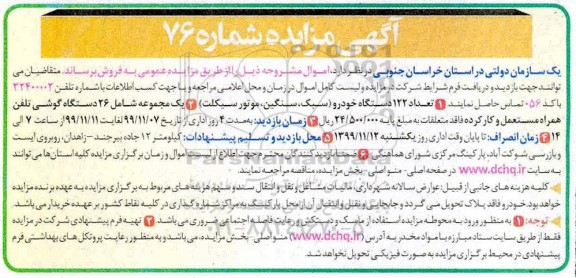 آگهی مزایده شماره ۷۶
یک سازمان دولتی در استان خراسان جنوبی در نظر دارد، اموال مشروحه ذیل را از طریق مزایده عمومی به فروش برساند. متقاضیان می
توانند جهت بازدید و دریافت فرم شرایط شرکت در مزایده و لیست کامل اموال در زمان و محل اعلامی مراجعه و یا جهت کسب اطلاعات با شماره تلفن ۳۲۴۰۰۰۰۲
با کد ۰۵۶ تماس حاصل نمایند. ۱ تعداد ۱۲۲ دستگاه خودرو (سبک، سنگین، موتور سیکلت) ۲ یک مجموعه شامل ۲۶ دستگاه گوشی تلفن
همراه مستعمل و کارکرده فاقد متعلقات به مبلغ پایه ۲۴/۵۰۰/۰۰۰ ریال ۳ زمان بازدید: به مدت ۴ روز اداری از تاریخ ۹۹/۱۱/۰۷ لغایت ۹۹/۱۱/۱۱ از ساعت ۷ الی
۱۴ ۴ زمان انصراف: تا پایان وقت اداری روز یکشنبه ۱۳۹۹/۱۱/۱۲ ۵ محل بازدید و تسلیم پیشنهادات: کیلومتر ۱۲ جاده بیرجند - زاهدان، روبروی ایست
و بازرسی شوکت آباد، پارکینگ مرکزی شورای هماهنگی ۶ ضمناً بازدید کنندگان محترم جهت اطلاع از لیست اموال و زمان برگزاری مزایده کلیه استان‌ها می توانند
به سایت www.dchq.ir در صفحه اصلی- منو اصلی- بخش مزایده، مناقصه مراجعه نمایند.
کلیه هزینه های جانبی از قبیل: عوارض سالانه شهرداری، مالیات مشاغل و نقل و انتقال سند و سهم هزینه های مربوط به برگزاری مزایده به عهده برنده مزایده
خواهد بود. خودرو فاقد پلاک تحویل می گردد و جابجایی و نقل و انتقال آن از محل پارکینگ به مراکز شماره گذاری در کلیه نقاط کشور بر عهده خریدار می باشد.
توجه: ۱ به منظور ورود به محوطه مزایده استفاده از ماسک و دستکش و رعایت فاصله اجتماعی ضروری می باشد. ۲ تهیه فرم پیشنهادی شرکت در مزایده
فقط از طریق سایت ستاد مبارزه با مواد مخدر به آدرس (www.dchq.ir) منو اصلی- بخش مزایده، می باشد و به منظور رعایت پروتکل های بهداشتی فرم
پیشنهادی در محیط برگزاری مزایده به صورت فیزیکی تحویل نخواهد شد.